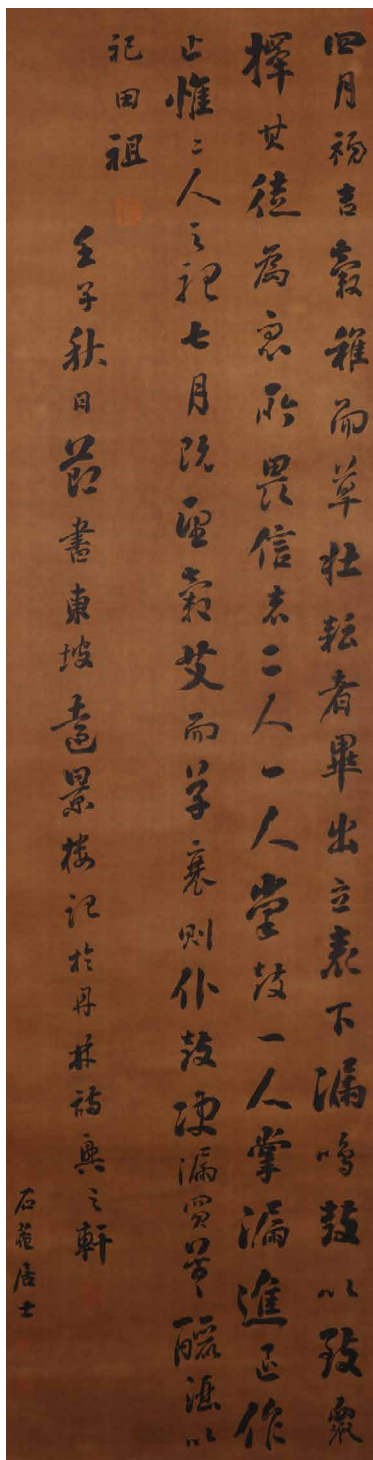 四月初吉穀稚而草壯耘者畢出立表下漏鳴鼓以致衆
擇其徒為衆所畏信者二人一人掌鼓一人掌漏進退作
止惟二人之聽七月既望穀艾而草衰則仆鼓決漏買羊釃酒以
祀田祖
壬子秋日節書東坡遠景樓記於丹林詩興之軒
石居士